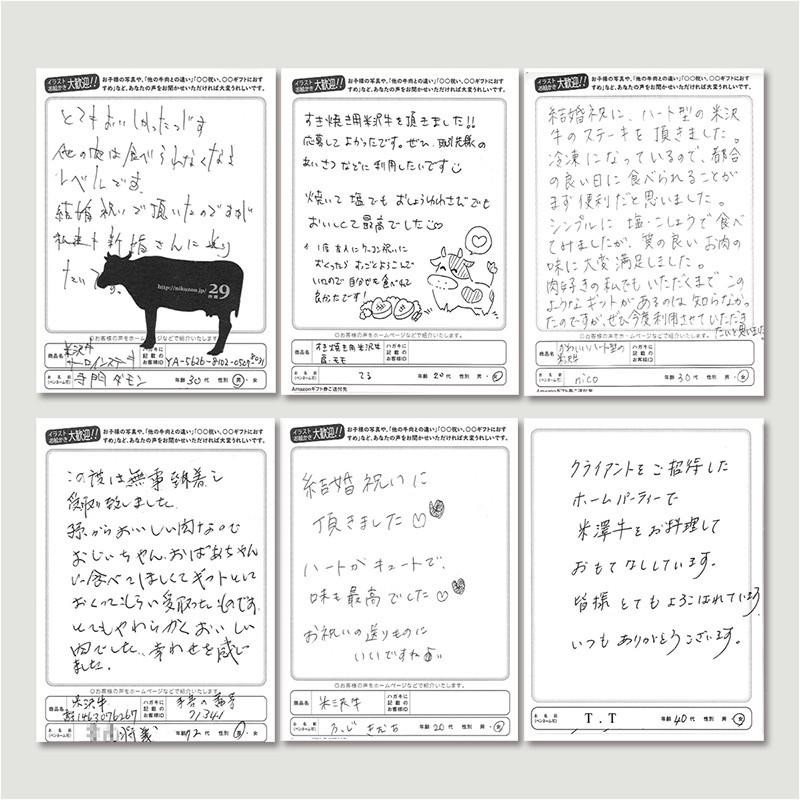 イラスト
お絵かき 大歓迎!!
お子様の写真や、「他の牛肉との違い」「〇〇祝い、〇〇ギフトにおす
すめ」など、あなたの声をお聞かせいただければ大変うれしいです。
とてもおいしかったです
他の肉は食べられなくなる
レベルです。
結婚祝いで頂いたのですが
私達も新婚さんに送り
たいです。
http://nikuzoo.jp/ 29
◎お客様の声をホームページなどで紹介いたします。
商品名 米沢牛
サーロインステーキ
ハガキに
記載の
お客様ID YA-5626-8102-0529-8031
お名前
(ペンネーム可) 寺門ダモン 年齢 30代 性別 男・女
イラスト
お絵かき 大歓迎!!
お子様の写真や、「他の牛肉との違い」「〇〇祝い、〇〇ギフトにおす
すめ」など、あなたの声をお聞かせいただければ大変うれしいです。
すき焼き用米沢牛を頂きました!!
応募してよかったです。ぜひ、取引先様の
あいさつなどに利用したいです
焼いて塩でもおしょうゆわさびでも
おいしくて最高でした
良かたです!
◎お客様の声をホームページなどで紹介いたします。
商品名 すき焼き用米沢牛
肩・モモ
ハガキに
記載の
お客様ID
お名前
(ペンネーム可) てる 年齢 20代 性別 男・女
Amazonギフト券ご送付先
イラスト
お絵かき 大歓迎!!
お子様の写真や、「他の牛肉との違い」「〇〇祝い、〇〇ギフトにおす
すめ」など、あなたの声をお聞かせいただければ大変うれしいです。
結婚祝に、ハート型の米沢
牛のステーキを頂きました。
冷凍になっているので、都合
の良い日に食べられることが
まず便利だと思いました。
シンプルに塩・こしょうで食べ
てみましたが、質の良いお肉の
味に大変満足しました。
肉好きの私でもいただくまでこの
ようなギフトがあるのは知らなかっ
たのですが、ぜひ今度利用させていただき
たいと思いました。
◎お客様の声をホームページなどで紹介いたします。
商品名 かわいいハート型の
米沢牛
ハガキに
記載の
お客様ID
お名前
(ペンネーム可) nico 年齢 30代 性別 男・女
イラスト
お絵かき 大歓迎!!
お子様の写真や、「他の牛肉との違い」「〇〇祝い、〇〇ギフトにおす
すめ」など、あなたの声をお聞かせいただければ大変うれしいです。
この度は無事到着し
受取り致しました。
孫からおいしい肉なので
おじいちゃん、おばあちゃん
に食べてほしくてギフトとして
おくってもらい受取ったものです。
とてもやわらかくおいしい
肉でした。幸わせを感じ
ました。
◎お客様の声をホームページなどで紹介いたします。
商品名 米沢牛
ハガキに
記載の
お客様ID
71341
お名前
(ペンネーム可) 年齢 72代 性別 男・女
イラスト
お絵かき 大歓迎!!
お子様の写真や、「他の牛肉との違い」「〇〇祝い、〇〇ギフトにおす
すめ」など、あなたの声をお聞かせいただければ大変うれしいです。
結婚祝いに
頂きました
ハートがキュートで、
味も最高でした
お祝いの送りものに
いいですね
◎お客様の声をホームページなどで紹介いたします。
商品名 米沢牛
ハガキに
記載の
お客様ID
お名前
(ペンネーム可) 年齢 20代 性別 男・女
クライアントをご招待した
ホームパーティーで
米澤牛をお料理して
おもてなししています。
皆様とてもよろこばれています
いつもありがとうございます。
お名前
(ペンネーム可) T.T 年齢 40代 性別 男・女